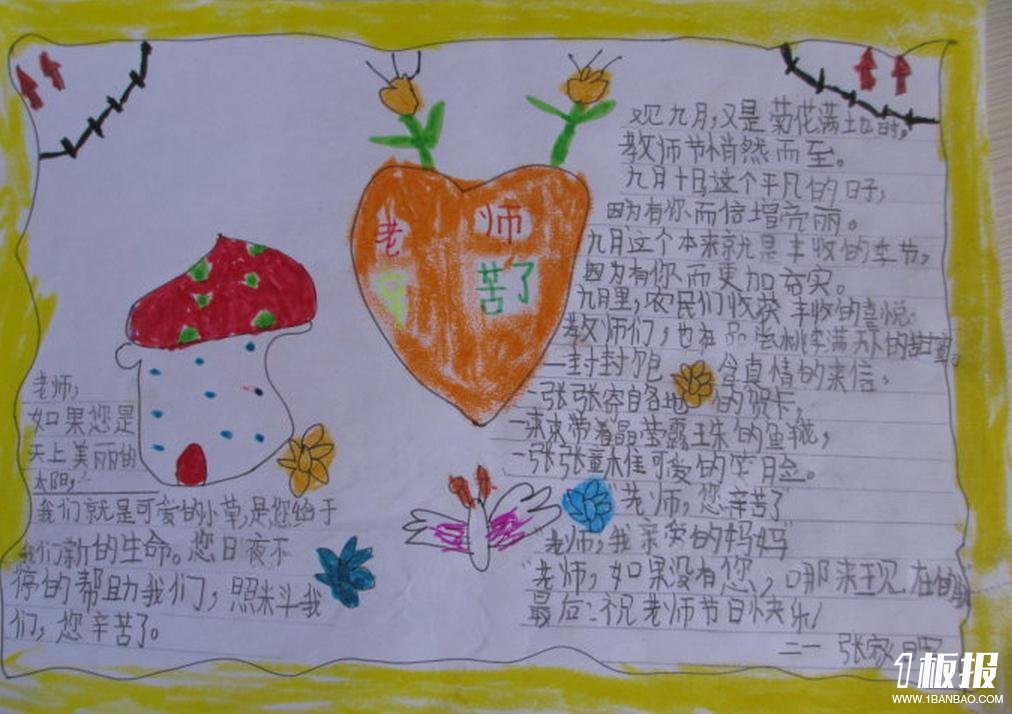 老师
您苦了
老师,
如果您是
天上美丽的
太阳,
我们就是可爱的小草,是您给于
我们新的生命。您日夜不
停的帮助我们,照料我
们,您辛苦了。
观九月,又是菊花满地时,
教师节悄然而至。
九月十日这个平凡的日子,
因为有你而倍增亮丽。
九月这个本来就是丰收的季节,
因为有你而更加夯实。
九月里,农民们收获丰收的喜悦:
教师们,也在品尝桃李满天下的甜蜜。
一封封包含真情的来信,
一张张寄自各地的贺卡,
一束束带着晶莹露珠的鱼
一张张童木佳可爱的笑脸。
"老师,您辛苦了"
"老师,我亲爱的妈妈"
"老师,如果没有您,哪来现在的我"
最后:祝老师节日快乐!
二一 张家
1板报
WWW.1BANBAO.COM